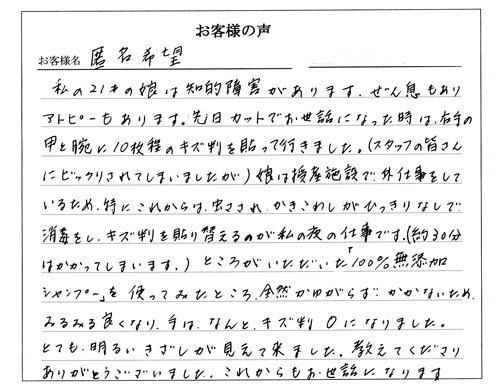 お客様の声
お客様名 匿名希望
私の21才の娘は知的障害があります。ぜん息もあり
アトピーもあります。先日カットでお世話になった時は、右手の
甲と腕に10枚程のキズ判を貼って行きました。(スタッフの皆さん
にビックリされてしまいましたが)娘は授産施設で、外仕事をして
いるため、特にこれからは、虫さされ、かきこわしがひっきりなしで
消毒をし、キズ判を貼り替えるのが私の夜の仕事です。(約30分
はかかってしまいます。)ところがいただいた「100%無添加
シャンプー」を使ってみたところ、全然かゆがらず、かかないため、
みるみる良くなり、手は、なんと、キズ判0になりました。
とても、明るいきざしが見えて来ました。教えてくださり
ありがとうございました。これからもお世話になります